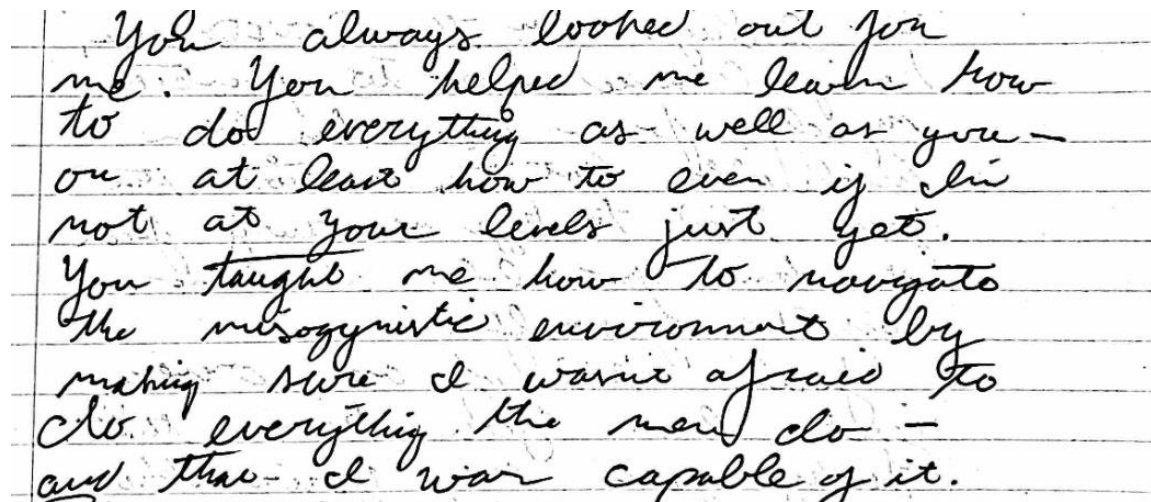 You always looked out for
me. You helped me learn how
to do everything as well as you –
or at least how to even if I'm
not at your levels just yet.
You taught me how to navigate
the misogynistic environment by
making sure I wasn't afraid to
do everything the men do –
and that I was capable of it.